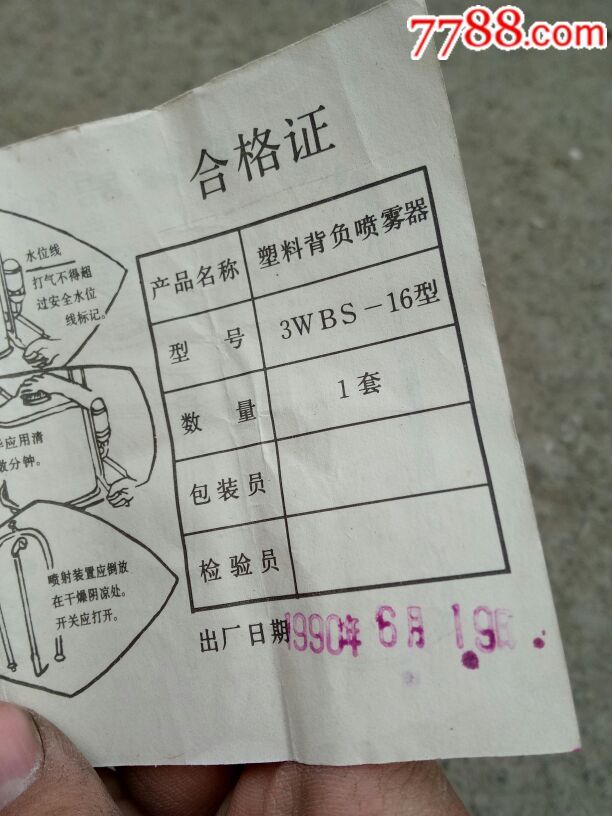 7788.com
合格证
产品名称 塑料背负喷雾器
型号 3WBS-16型
数量 1套
包装员
检验员
出厂日期 1990年6月19日
水位线
打气不得超
过安全水位
线标记。
应用清
数分钟。
喷射装置应倒放
在干燥阴凉处。
开关应打开。